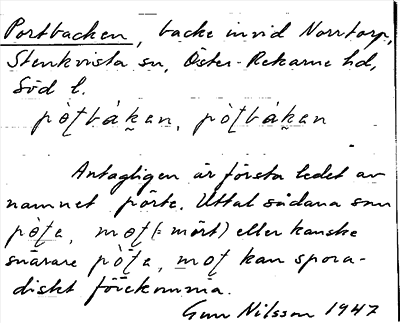 Portbacken, backe invid Norrtorp,
Stenkvista sn, Öster-Rekarne hd,
Söd l.
pòṭbákan, pòṭbákan
Antagligen är första ledet av
namnet pörte. Uttal sådana som
pòṭa, moṭ (= mört) eller kanske
snarare pòṭa, moṭ kan spora-
diskt förekomma.
Gun Nilsson 1947